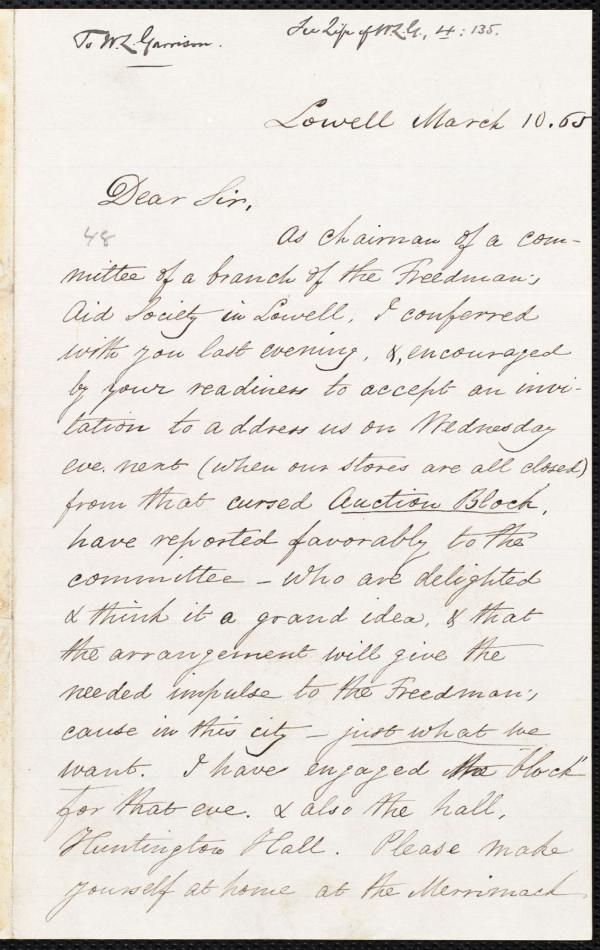 To W. L. Garrison.
See Life of W.L.G., 4: 135.
Lowell March 10. 65
Dear Sir,
48
As chairman of a com-
mittee of a branch of the Freedman's
Aid Society in Lowell, I conferred
with you last evening, &, encouraged
by your readiness to accept an invi-
tation to address us on Wednesday
eve. next (when our stores are all closed)
from that cursed Auction Block,
have reported favorably to the
committee – who are delighted
& think it a grand idea, & that
the arrangement will give the
needed impulse to the Freedman's
cause in this city – just what we
want. I have engaged the "block"
for that eve. & also the hall,
Huntington Hall. Please make
yourself at home at the Merrimack